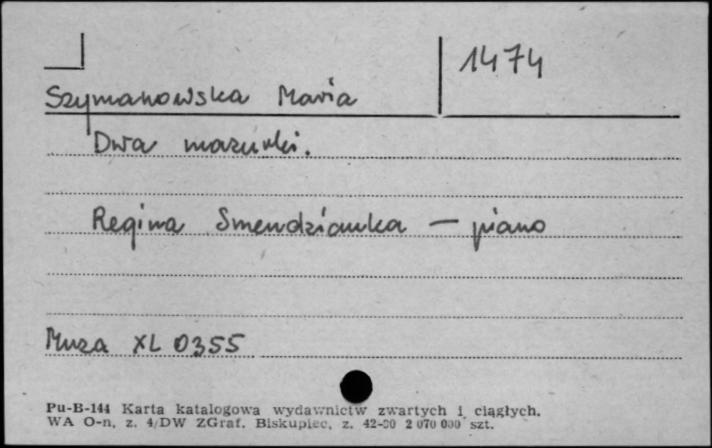 1474
Szymanowska Maria
Dwa mazurki.
Regina Smendzianka — piano
Muza XL 0355
Pu-B-144 Karta katalogowa wydawnictw zwartych i ciągłych.
WA O-n, z. 4/DW ZGraf. Biskupiec, z. 42-80 2 070 000 szt.